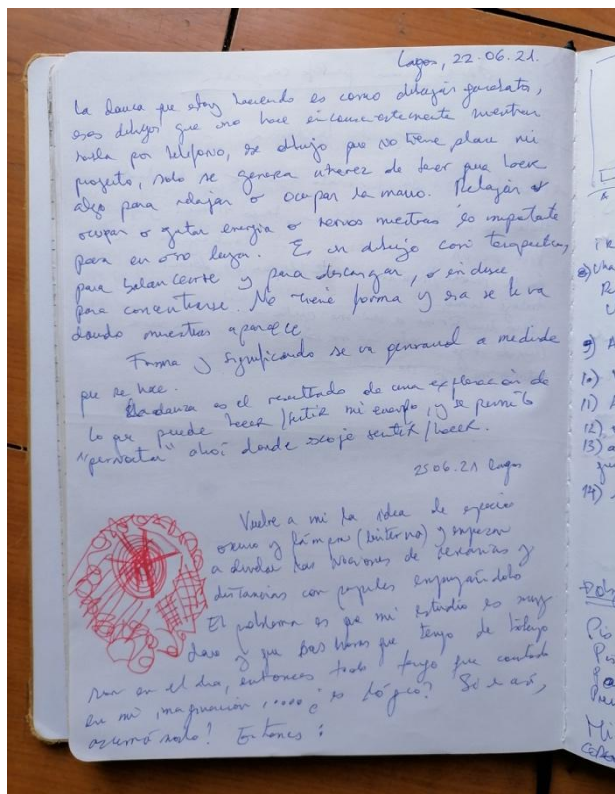 Lagos, 22.06.21.
La danza que estoy haciendo es como dibujar garabatos,
esos dibujos que uno hace inconscientemente mientras
habla por teléfono, ese dibujo que no tiene plan ni
proyecto, solo se genera a través de tener que hacer
algo para relajar o ocupar la mano. Relajar
ocupar o gastar energia o nervos mientras lo importante
pasa en otro lugar. Es un dibujo casi terapeutico,
para balancearse y para descargar, o incluso
para concentrarse. No tiene forma y esa se le va
dando mientras aparece
Forma y significado se va a medida
que se hace.
La danza es el resultado de una exploración de
lo que puede hacer/sentir mi cuerpo, y se permite
"pernoctar" ahí donde escoje sentir/hacer.
25.06.21 Lagos
Vuelve a mi la idea de espacio
oscuro y lámpara (linterna) y empezar
a dividir las nociones de cercanías y
distancias con papeles
El problema es que mi estudio es muy
claro y que las horas que tengo de trabajo
son en el día, entonces todo tengo que
en mi imaginación, .... ¿es lógico? Si es así,
Entonces:
9)
10)
11)
12)
13)
14)